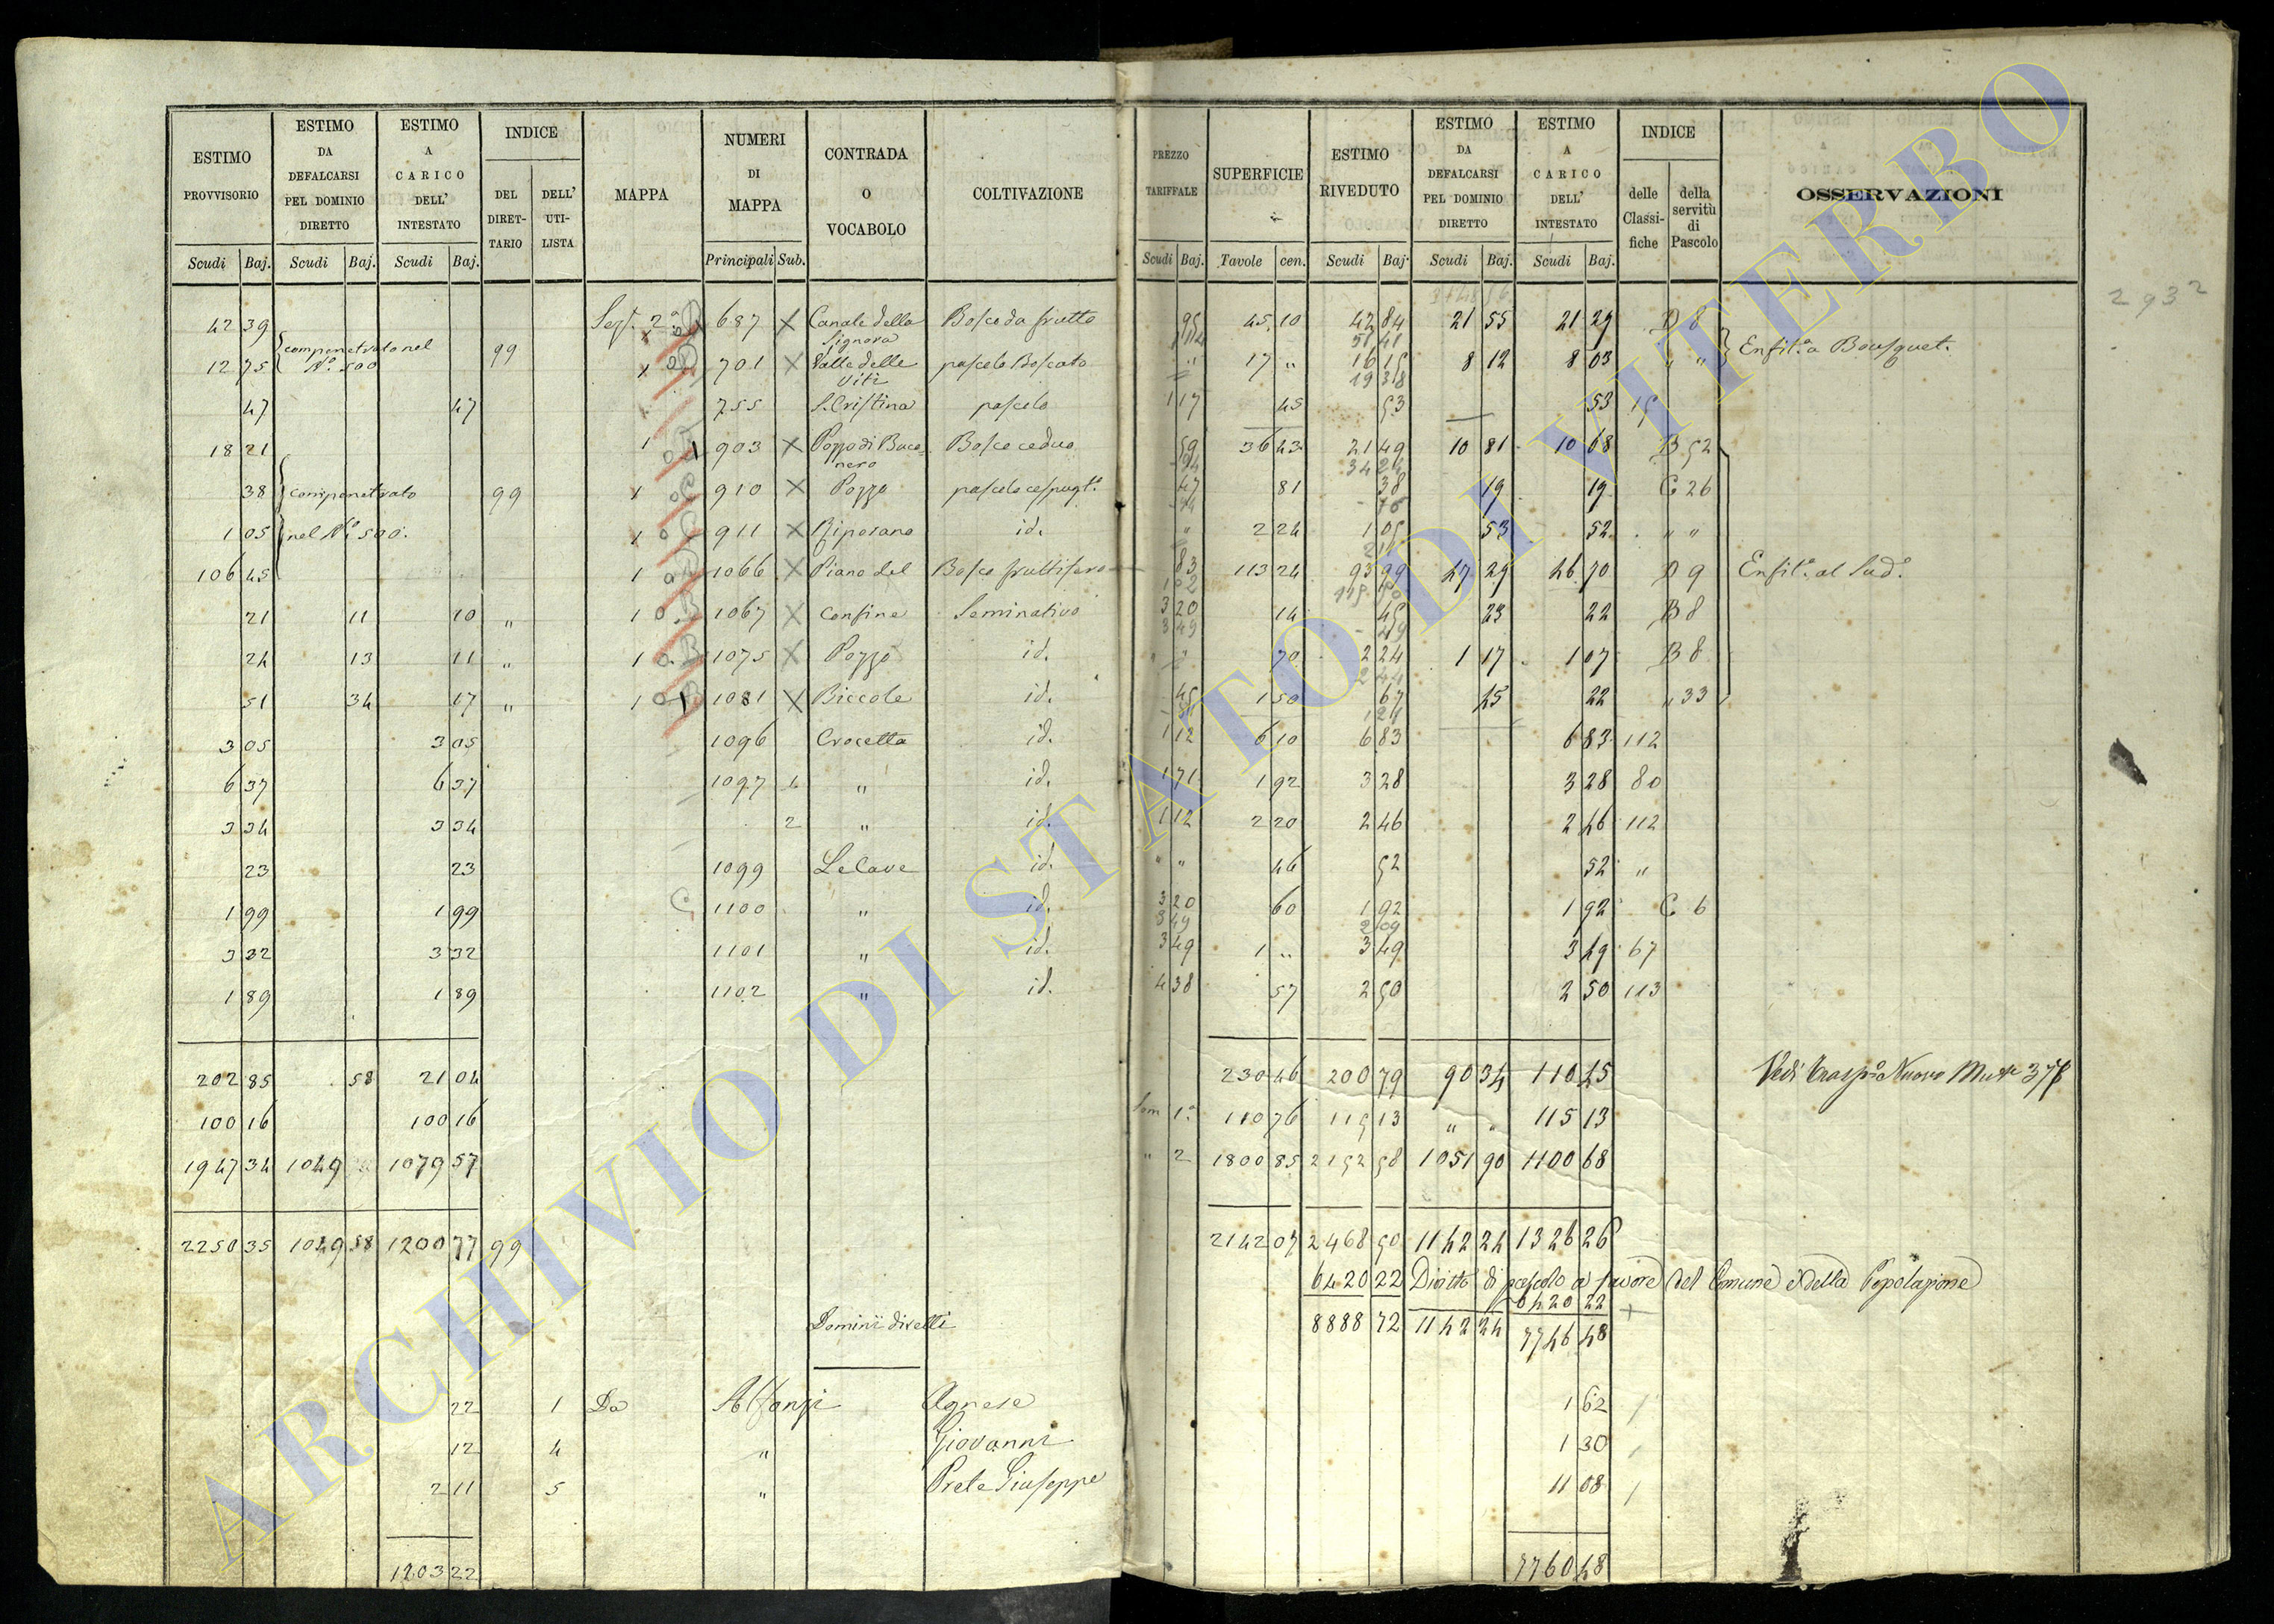 ESTIMO PROVVISORIO | ESTIMO DA DEFALCARSI PEL DOMINIO DIRETTO | ESTIMO A CARICO DELL' INTESTATO | INDICE DEL DIRET-TARIO | DELL' UTI-LISTA | MAPPA | NUMERI DI MAPPA | CONTRADA O VOCABOLO | COLTIVAZIONE | PREZZO TARIFFALE | SUPERFICIE | ESTIMO RIVEDUTO | ESTIMO DA DEFALCARSI PEL DOMINIO DIRETTO | ESTIMO A CARICO DELL' INTESTATO | INDICE delle Classi-fiche | della servitù di Pascolo | OSSERVAZIONI
Scudi Baj. | Scudi Baj. | Scudi Baj. | Principali Sub. | Scudi Baj. | Tavole cen. | Scudi Baj. | Scudi Baj. | Scudi Baj.
2932
42 39 | Sez. 2a | 687 | Canale della Signora | Bosco da frutto | 95 | 45 10 | 42 84 | 21 55 | 21 29 | D 8
12 75 | compenetrato nel N.o 500 | 99 | 1 | 701 | Valle delle Viti | pascolo Boscato | " | 17 " | 16 15 | 8 12 | 8 03 | " " | Enfit.a a Bousquet.
19 38
47 | 47 | 755 | S. Cristina | pascolo | 1 17 | 45 | 53 | 53 | 15
18 21 | 1 | 903 | Pozzo di Buco nero | Bosco ceduo | 59 | 36 43 | 21 49 | 10 81 | 10 68 | B 52
38 | compenetrato | 99 | 1 | 910 | Pozzo | pascolo cespugl.o | 47 | 81 | 38 | 19 | 19 | C 26
1 05 | nel N.o 500. | 1 | 911 | Riporano | id. | " | 2 24 | 1 05 | 53 | 52 | " "
106 45 | 1 | 1066 | Piano del | Bosco fruttifero | 83 | 113 24 | 93 99 | 47 29 | 46 70 | D 9 | Enfit.a al Sud.o
21 | 11 | 10 | " | 1 | 1067 | Confine | Seminativo | 3 20 | 14 | 45 | 23 | 22 | B 8
3 49
24 | 13 | 11 | " | 1 | 1075 | Pozzo | id. | " | 70 | 2 24 | 1 17 | 1 07 | B 8
2 44
51 | 34 | 17 | " | 1 | 1081 | Biccole | id. | 45 | 1 50 | 67 | 45 | 22 | " 33
3 05 | 3 05 | 1096 | Crocetta | id. | 1 12 | 6 10 | 6 83 | 6 83 | 112
6 37 | 6 37 | 1097 | " | id. | 1 71 | 1 92 | 3 28 | 3 28 | 80
3 34 | 3 34 | 2 | " | id. | 1 12 | 2 20 | 2 46 | 2 46 | 112
23 | 23 | 1099 | Le Cave | id. | " " | 46 | 52 | 52 | "
1 99 | 1 99 | 1100 | " | id. | 3 20 | 60 | 1 92 | 1 92 | C 6
3 49 | 2 09
3 32 | 3 32 | 1101 | " | id. | 3 49 | 1 " | 3 49 | 3 49 | 67
1 89 | 1 89 | 1102 | " | id. | 4 38 | 57 | 2 50 | 2 50 | 113
202 85 | 58 | 21 04 | 230 46 | 200 79 | 90 34 | 110 45 | Vedi Trasp.o Nuovo
100 16 | 100 16 | Som 1a | 110 76 | 115 13 | " " | 115 13
1947 34 | 1049 | 1079 57 | " 2 | 1800 85 | 2152 58 | 1051 90 | 1100 68
2250 35 | 1049 58 | 1200 77 | 99 | 2142 07 | 2468 50 | 1142 24 | 1326 26
6420 22 | Diritto di pascolo a favore del Comune e della Popolazione
6420 22
Dominii diretti | 8888 72 | 1142 24 | 7746 48
22 | 1 | Da | Alfonzi | Agnese | 1 62
12 | 4 | " | Giovanni | 1 30
2 11 | 5 | " | Prete Giuseppe | 11 08
1203 22 | 7760 48
ARCHIVIO DI STATO DI VITERBO